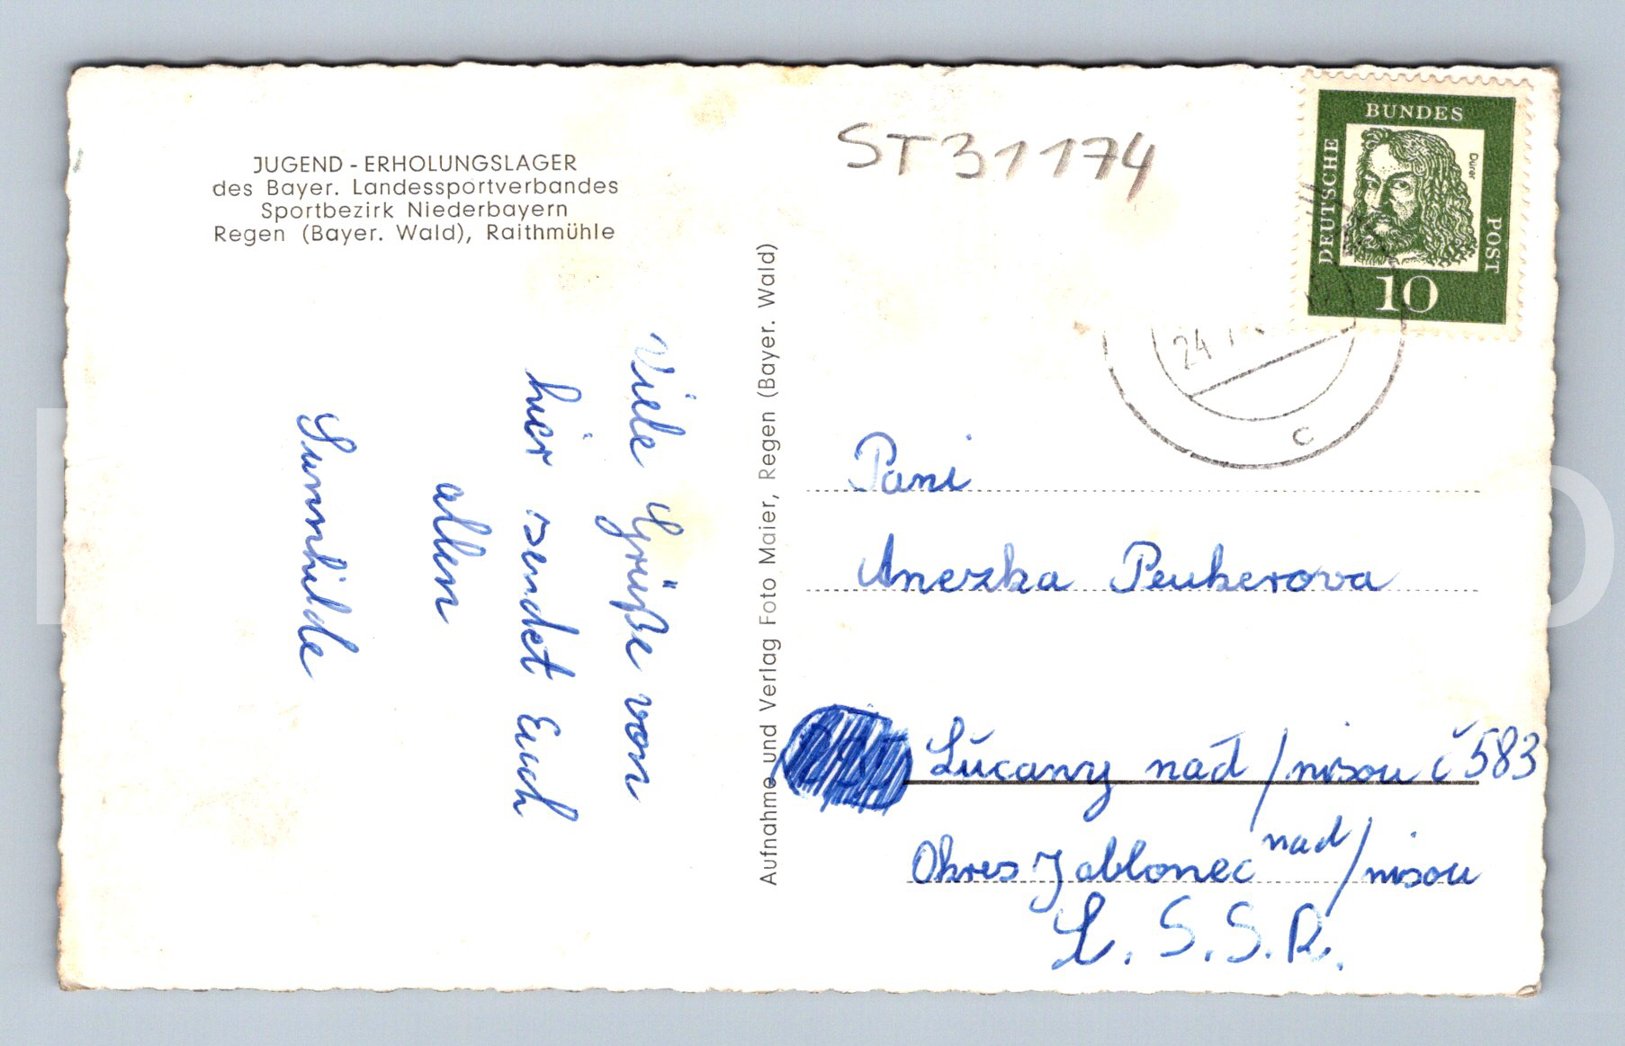 JUGEND - ERHOLUNGSLAGER
des Bayer. Landessportverbandes
Sportbezirk Niederbayern
Regen (Bayer. Wald), Raithmühle
Viele Grüße von
hier sendet Euch
allen
Sunnhilde
Aufnahme und Verlag Foto Maier, Regen (Bayer. Wald)
ST31174
BUNDES
DEUTSCHE
POST
Dürer
10
24
c
Pani
Anezka Peukerova
Lučany nad/nisou č 583
Okres Jablonec nad/nisou
Č.S.S.R.